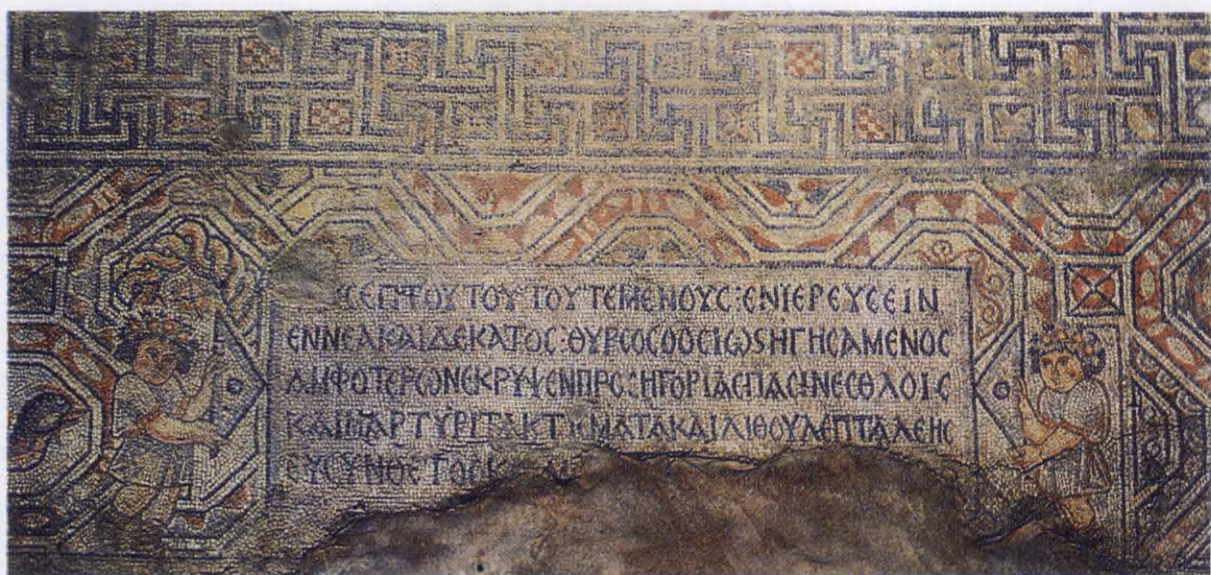 ΤΟΥΤΕΜΕΝΟΥϹ:ΕΝΙΕΡΕΥϹΕΙΝ
ΕΝΝΕΑΚΑΙΔΕΚΑΤΟϹ:ΘΥΡϹΟϹΟΘΕΙΩϚΗΓΗϹΑΜΕΝΟϹ
ΑΜΦΟΤΕΡΩΝΕΚΡΥΨΕΝΠΡΟϹΗΓΟΡΙΑϹΠΑϹΙΝΕϹΘΛΟΙϹ
ΚΑΙΜΑΡΤΥΡΙΤΑΚΤΙϹΜΑΤΑΚΑΙΛΙΘΟΥΛΕΠΤΑΛΕΗϹ
ΕΥϹΥΝΘΕΤΟϹ